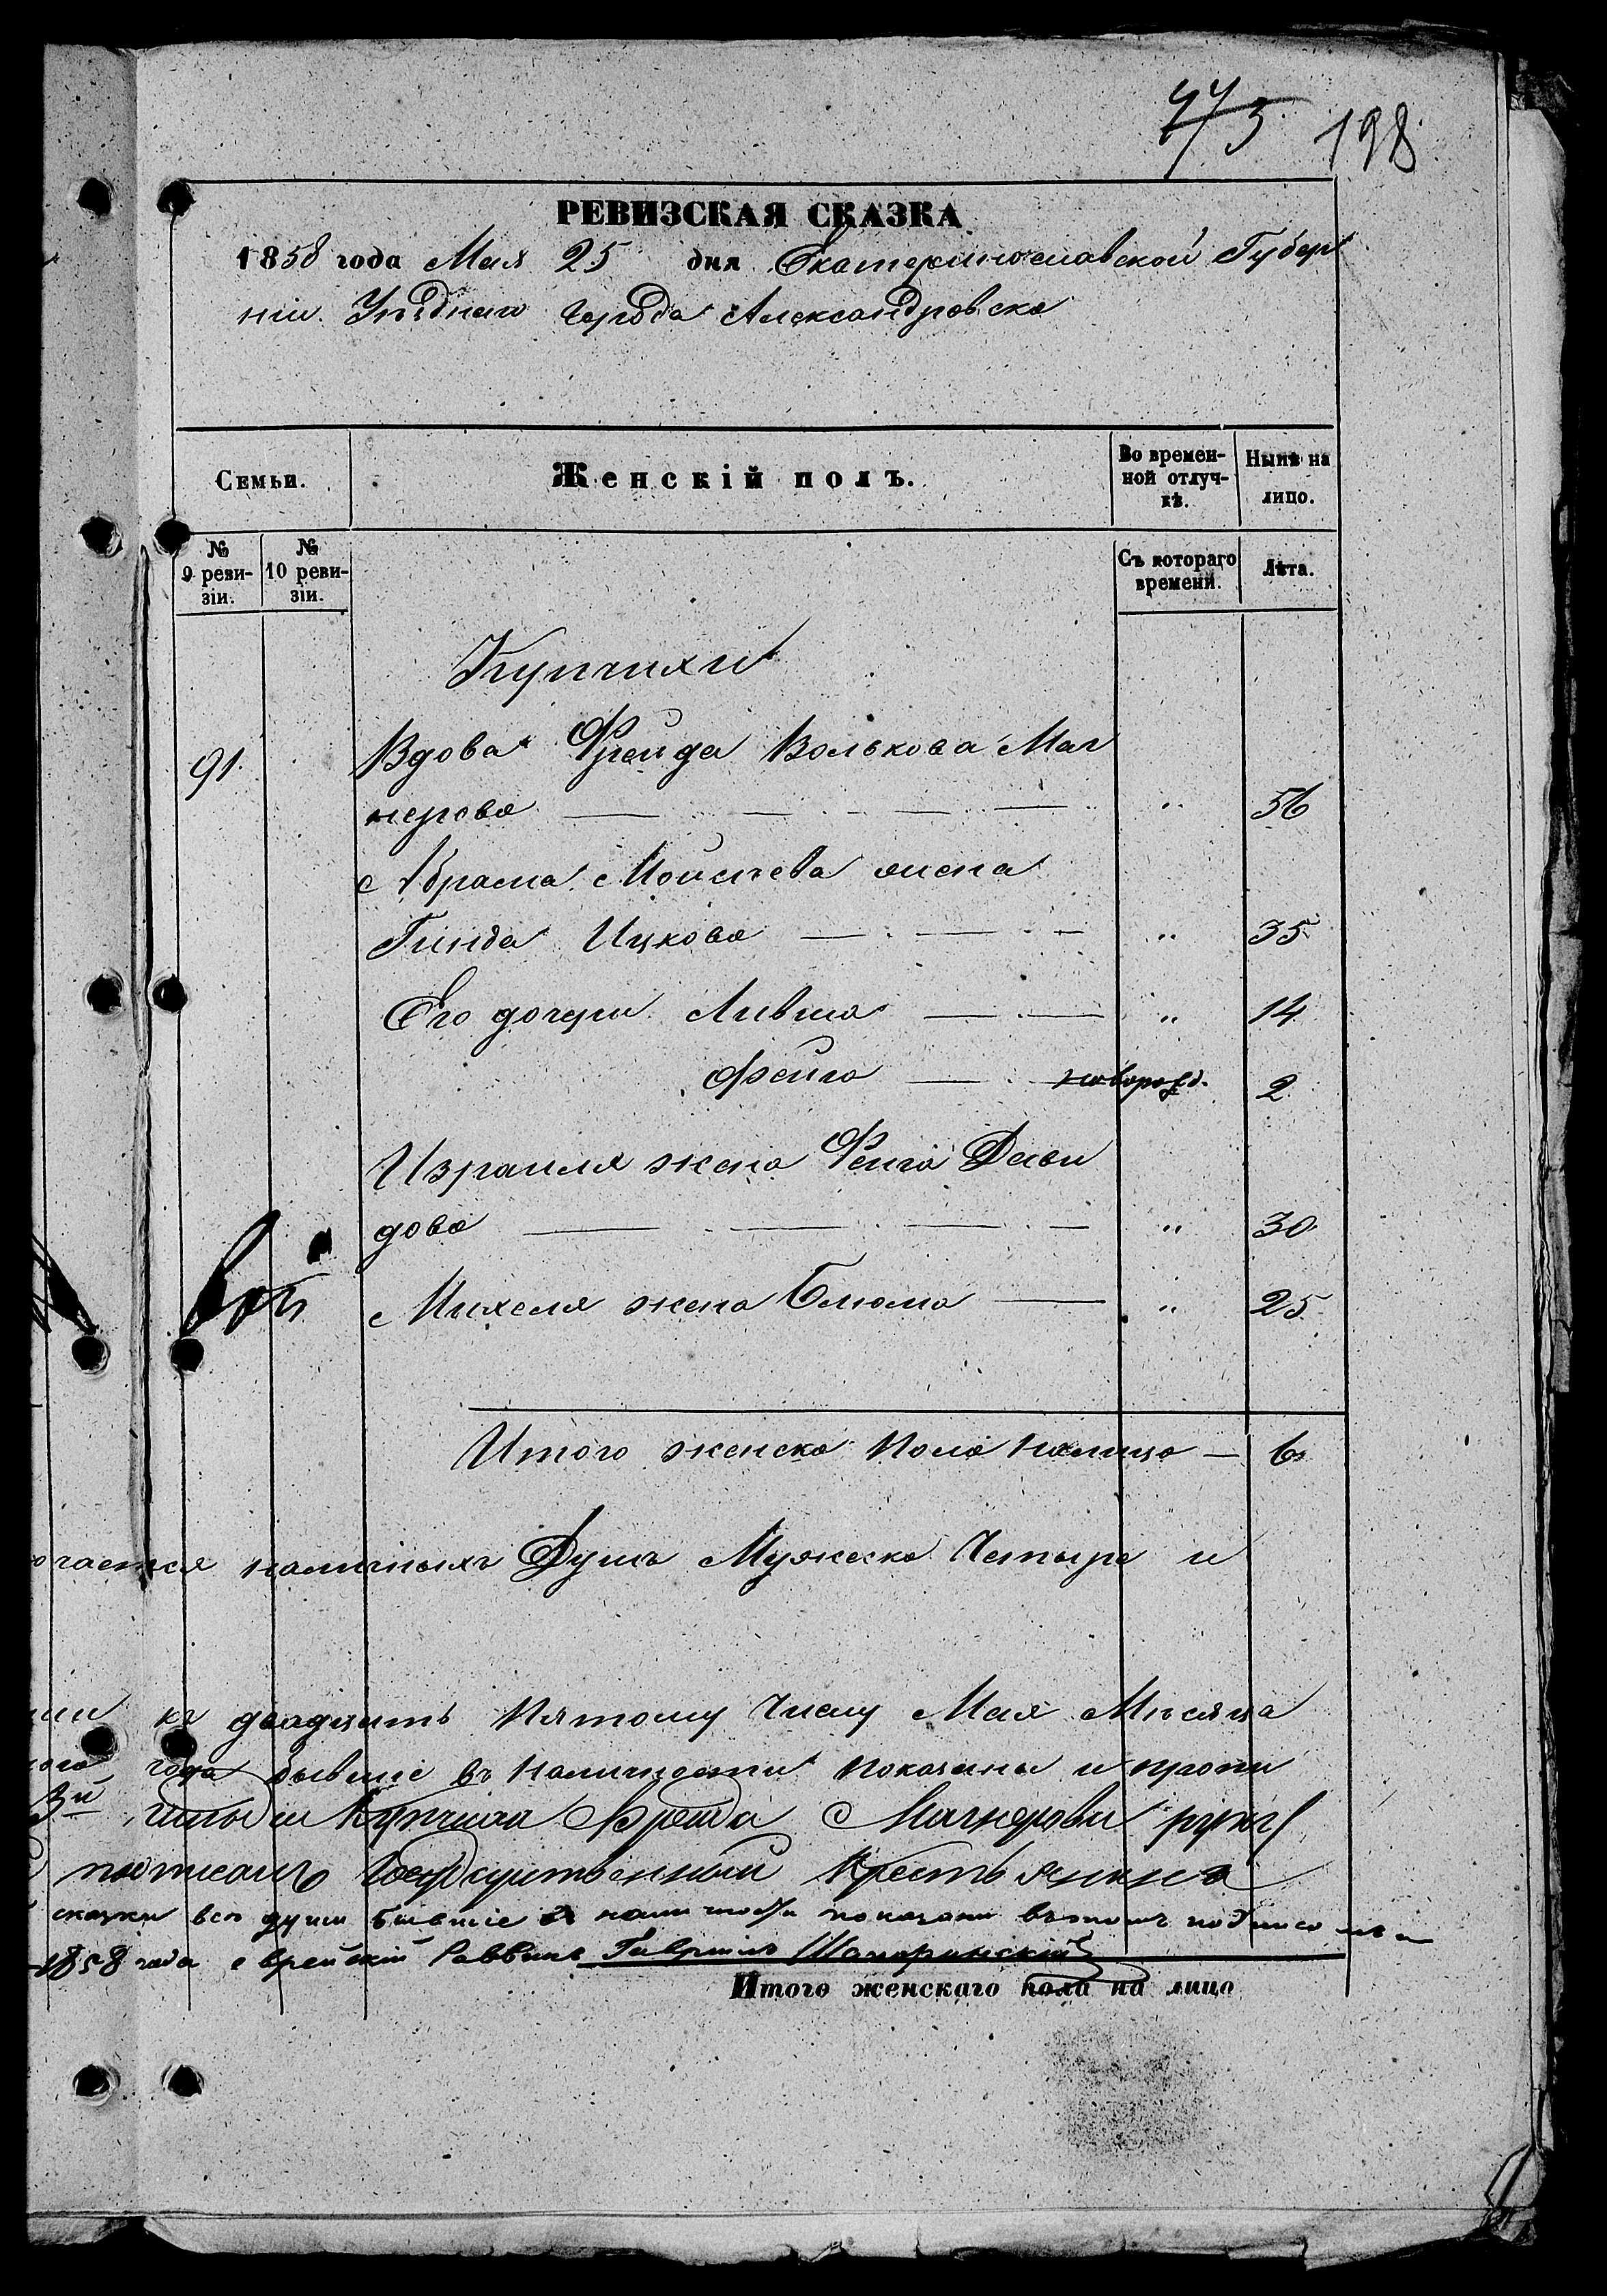 198
РЕВИЗСКАЯ СКАЗКА
1858 года Мая 25 дня Екатеринославской Губер
ніи Уѣзднаго города Александровска
Семьи.
Женскій полъ.
Во времен-
ной отлуч-
кѣ.
Нынѣ на
лицо.
№
9 реви-
зіи.
№
10 реви-
зіи.
Съ котораго
времени.
Лѣта.
Купчихи
91. Вдова Фрейда Волькова Маг
нерова " 56
Абрама Моисѣева жена
Гинда Ицкова " 35
Его дочери Ливша " 14
Фейга новорожд. 2
Израиля жена Фейга Дави
дова " 30
Михеля жена Блюма " 25
Итого женска пола налицо — 6
очается наличныхъ Душъ Мужеска Четыре и
къ двадцать пятому числу Мая Мѣсяца
года бывшіе въ наличности показаны и пропи
3й Купчиха Фрейда Магнерова
Государственный Крестьянинъ
сказки всѣ души бывшіе в наличности показаны въ томъ подписомъ
1858 года еврейскій Раввинъ Гавріилъ
Итого женскаго пола на лицо